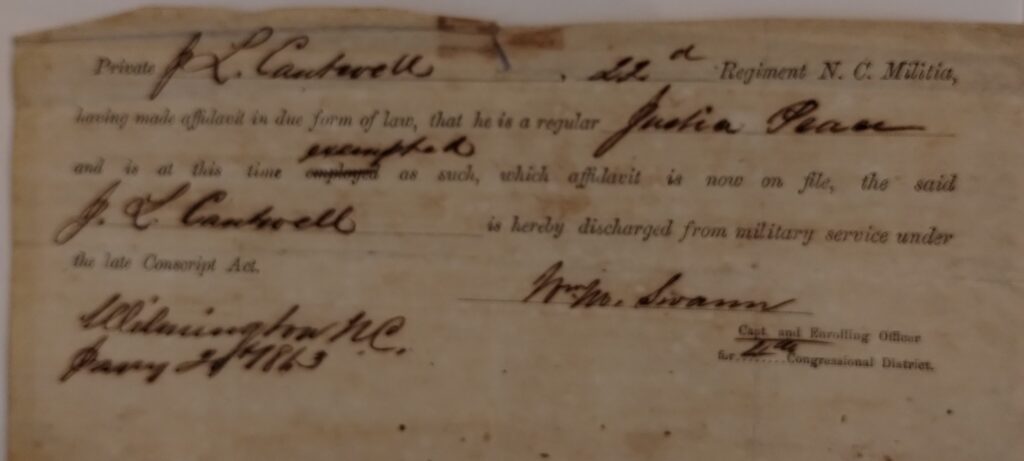 Private J L. Cantwell, 22d Regiment N. C. Militia,
having made affidavit in due form of law, that he is a regular Justice Peace
exempted
and is at this time employed as such, which affidavit is now on file, the said
J. L. Cantwell is hereby discharged from military service under
the late Conscript Act.
Wm M. Swann
Wilmington N.C.
Capt. and Enrolling Officer
for 4th Congressional District.
1863